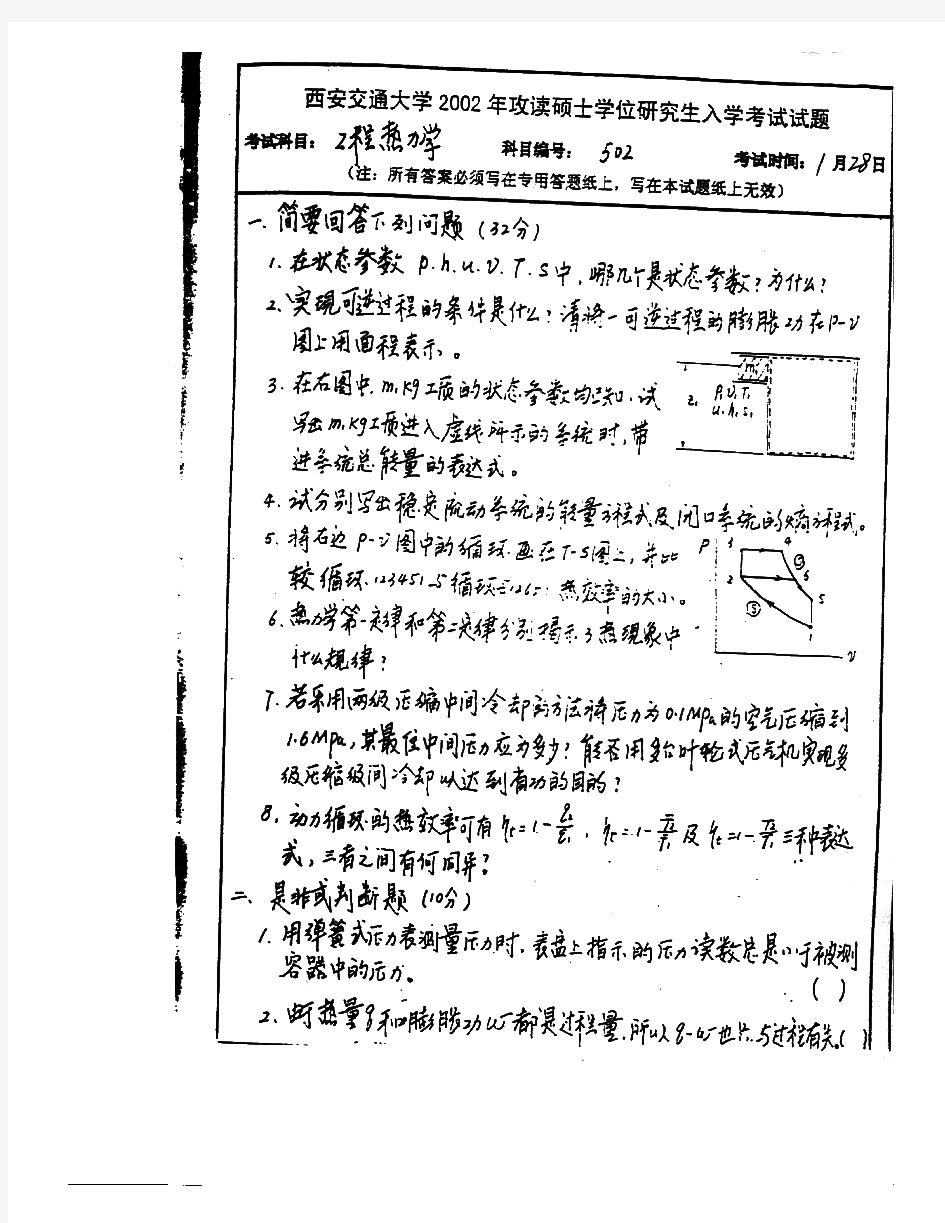 西安交通大学2002年攻读硕士学位研究生入学考试试题
考试科目：工程热力学 科目编号：502 考试时间：1月28日
（注：所有答案必须写在专用答题纸上，写在本试题纸上无效）
一、简要回答下列问题（32分）
1. 在状态参数 p.h.u.v.T.s中，哪几个是状态参数？为什么？
2. 实现可逆过程的条件是什么？请将一可逆过程的膨胀功在P-v
图上用面积表示。
3. 在右图中，m₁kg工质的状态参数均已知，试
写出m₁kg工质进入虚线所示的系统时，带
进系统总能量的表达式。
m₁
z₁ P₁v₁T₁
u₁h₁s₁
4. 试分别写出稳定流动系统的能量方程式及闭口系统的熵方程式。
5. 将右边P-v图中的循环画在T-s图上，并比
较循环123451与循环 热效率的大小。
P 3 4
2 S 6
S 5
1
v
6. 热力学第一定律和第二定律分别揭示了热现象中
什么规律？
7. 若采用两级压缩中间冷却的方法将压力为0.1MPa的空气压缩到
1.6MPa，其最佳中间压力应为多少？能否用多台叶轮式压气机实现多
级压缩级间冷却以达到省功的目的？
8. 动力循环的热效率可有 三种表达
式，三者之间有何同异？
二、是非或判断题（10分）
1. 用弹簧式压力表测量压力时，表盘上指示的压力读数总是小于被测
容器中的压力。 （ ）
2. 由于热量q和膨胀功w都是过程量，所以q-w也只与过程有关。（ ）